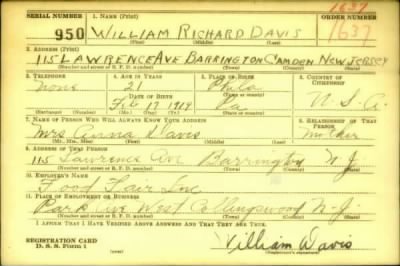 1637
SERIAL NUMBER 1. NAME (Print) ORDER NUMBER
950 WILLIAM RICHARD DAVIS 1637
(First) (Middle) (Last)
2. ADDRESS (Print)
115 LAWRENCE AVE BARRINGTON CAMDEN NEW JERSEY
(Number and street or R. F. D. number) (Town) (County) (State)
3. TELEPHONE 4. AGE IN YEARS 5. PLACE OF BIRTH 6. COUNTRY OF CITIZENSHIP
None 21 Phila
DATE OF BIRTH (Town or county)
Feb 17 1919 Pa U. S. A.
(Exchange) (Number) (Mo.) (Day) (Yr.) (State or country)
7. NAME OF PERSON WHO WILL ALWAYS KNOW YOUR ADDRESS 8. RELATIONSHIP OF THAT PERSON
Mrs Anna Davis Mother
(Mr., Mrs., Miss) (First) (Middle) (Last)
9. ADDRESS OF THAT PERSON
115 Lawrence Ave Barrington N J
(Number and street or R. F. D. number) (Town) (County) (State)
10. EMPLOYER'S NAME
Food Fair Inc
11. PLACE OF EMPLOYMENT OR BUSINESS
Park Ave West Collingswood N-J
(Number and street or R. F. D. number) (Town) (County) (State)
I AFFIRM THAT I HAVE VERIFIED ABOVE ANSWERS AND THAT THEY ARE TRUE.
REGISTRATION CARD
D. S. S. Form 1 William Davis